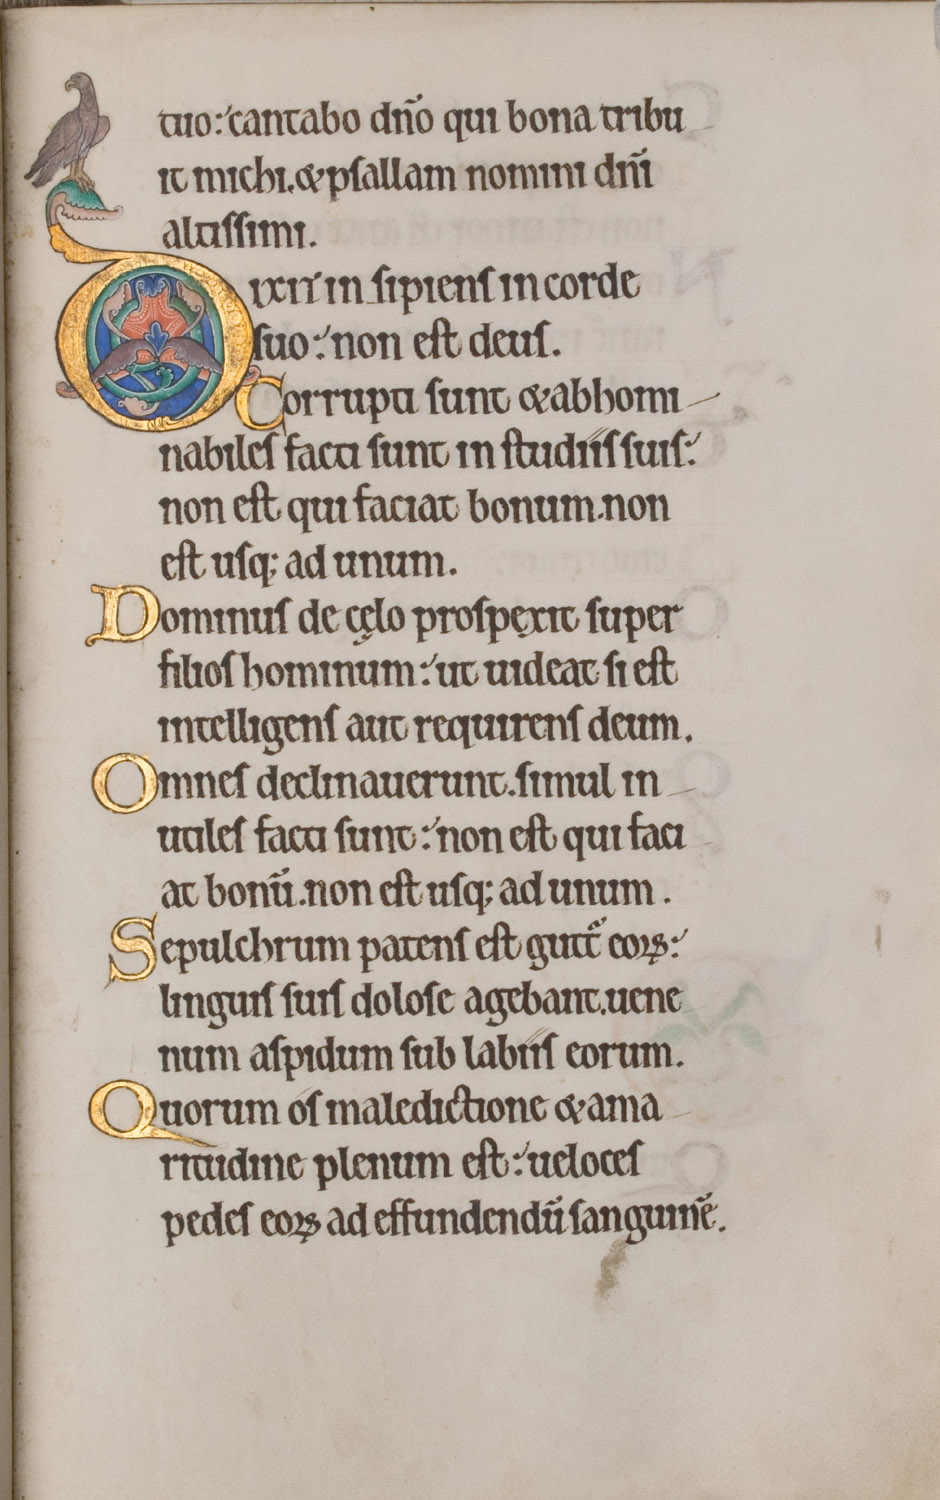 tuo: cantabo dn̄o qui bona tribu
it michi. &psallam nomini dn̄i
altissimi.
Dixit in sipiens in corde
suo: non est deus.
Corrupti sunt &abhomi
nabiles facti sunt in studiis suis:
non est qui faciat bonum. non
est usq; ad unum.
Dominus de cęlo prospexit super
filios hominum: ut uideat si est
intelligens aut requirens deum.
Omnes declinauerunt. simul in
utiles facti sunt: non est qui faci
at bonū. non est usq; ad unum.
Sepulchrum patens est gutt̄ eoꝝ:
linguis suis dolose agebant. uene
num aspidum sub labiis eorum.
Quorum os maledictione &ama
ritudine plenum est: ueloces
pedes eoꝝ ad effundendū sanguinē.